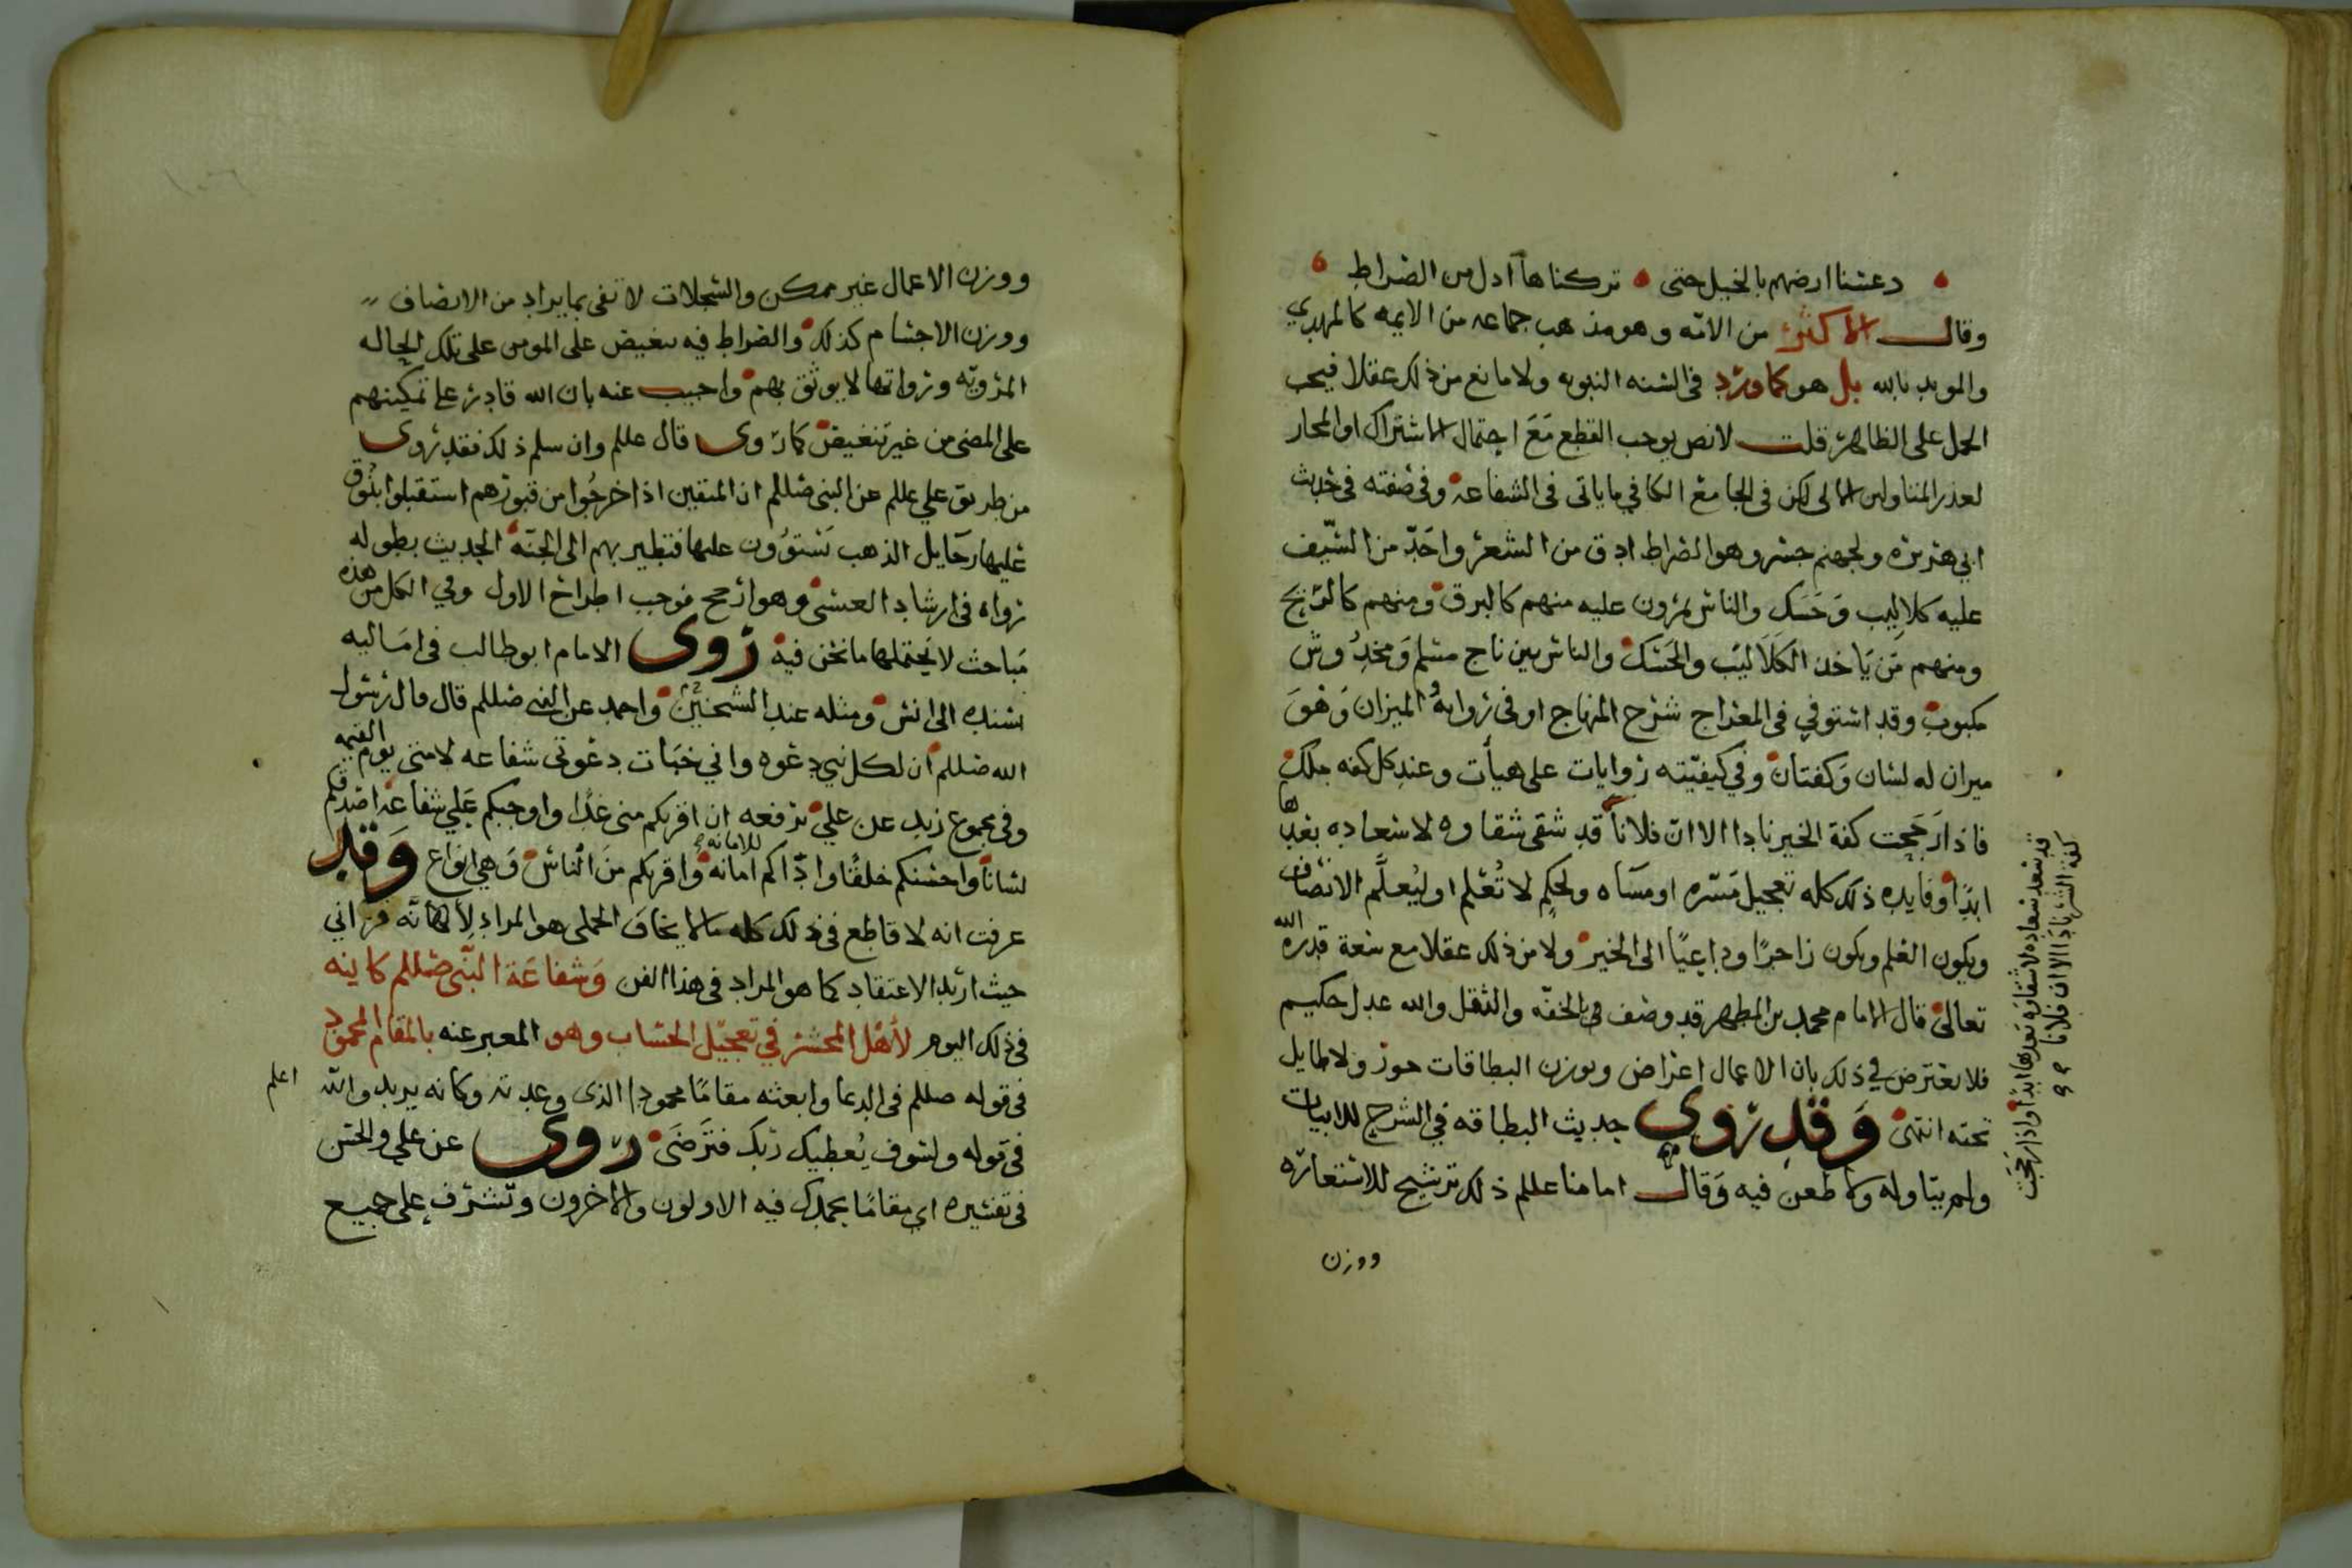 دعسنا ارضهم بالخيل حتى تركناها ادل من الصراط
وقال الاكثر من الامه وهو مذهب جماعه من الايمه كالمهدي
والمويد بالله بل هو كما ورد في السنه النبويه ولا مانع من ذلك عقلا فيجب
الحمل على الظاهر قلت لا نص يوجب القطع مع احتمال الاشتراك او المجاز
لعذر المتاولين لكن في الجامع الكافي ما ياتي في الشفاعه وفي صفته في حديث
ابي هريره ولجهنم جسر وهو الصراط ادق من الشعر واحدّ من السّيف
عليه كلاليب وحسك والناس يمرون عليه منهم كالبرق ومنهم كالريح
ومنهم من ياخذ الكلاليب والحسك والناس بين ناج مسلم ومخدوش
مكبوب وقد استوفي في المعراج شرح المنهاج او في روايه والميزان وهو
ميزان له لسان وكفتان وفي كيفيّته روايات على هيات وعند كل كفه ملك
فاذا رجحت كفة الخير نادا الا ان فلانا قد شقي شقاوه لا سعاده بعدها
ابدا وفايده ذلك كله تعجيل مسره او مساه ولحكم لا تُعلم او ليُعلّم الانصاف
ويكون العلم ويكون زاجرًا وداعيًا الى الخير ولا من ذلك عقلا مع سعة قدره الله
تعالى قال الامام محمد بن المطهر قد وصف بالخفّه والثقل والله عدل حكيم
فلا يعترض في ذلك بان الاعمال اعراض وبوزن البطاقات جوز ولا طايل
تحته انتهى وقد روي حديث البطاقه في الشرح للابيات
ولم يتاوله ولا طعن فيه وقال امامنا عللم ذلك ترشيح للاستعاره
ووزن
قد سعد سعاده لا شقاوه بعدها ابدا واذا رجحت
كفة الشر نادا الا ان فلانا
ووزن الاعمال غير ممكن والسجلات لا تفي بما يراد من الانصاف
ووزن الاجسام كذلك والصراط فيه تنغيض على المومن على تلك الحاله
المرويّه ورواتها لا يوثق بهم واجيب عنه بان الله قادر على تمكينهم
على المضي من غير تنغيض كما روى قال عللم وان سلم ذلك فقد روى
من طريق علي عللم عن النبي صللم ان المتقين اذا خرجُوا من قبورهم استقبلوا بنُوق
عليها رحايل الذهب يستوون عليها فتطير بهم الى الجنه الحديث بطوله
رواه في ارشاد العنسي وهو ارجح فوجب اطراح الاول وفي الكل من هذه
مباحث لا يحتملها ما نحن فيه روى الامام ابو طالب في اماليه
بسنده الى انس ومثله عند الشيخين واحمد عن النبي صللم قال قال رسول
الله صللم ان لكل نبي دعوه واني خبات دعوتي شفاعه لامتي يوم القيمه
وفي مجموع زيد عن علي يرفعه ان اقربكم مني غدًا واوجبكم علي شفاعه اصدقكم
لسانًا واحسنكم خلقًا وادّاكم امانه للامانه واقربكم من الناس وهي انواع وقد
عرفت انه لا قاطع في ذلك كله
حيث اريد الاعتقاد كما هو المراد في هذا الفن وشفاعة النبّي صللم كاينه
في ذلك اليوم لأهل المحشر في تعجيل الحساب وهو المعبر عنه بالمقام المحمود
في قوله صللم في الدعا وابعثه مقامًا محمودا الذي وعدته وكانه يريد والله اعلم
في قوله ولسوف يُعطيك ربّك فترضى روى عن علي والحسن
في تفسيره اي مقامًا يحمدك فيه الاولون والاخرون وتشرف على جميع